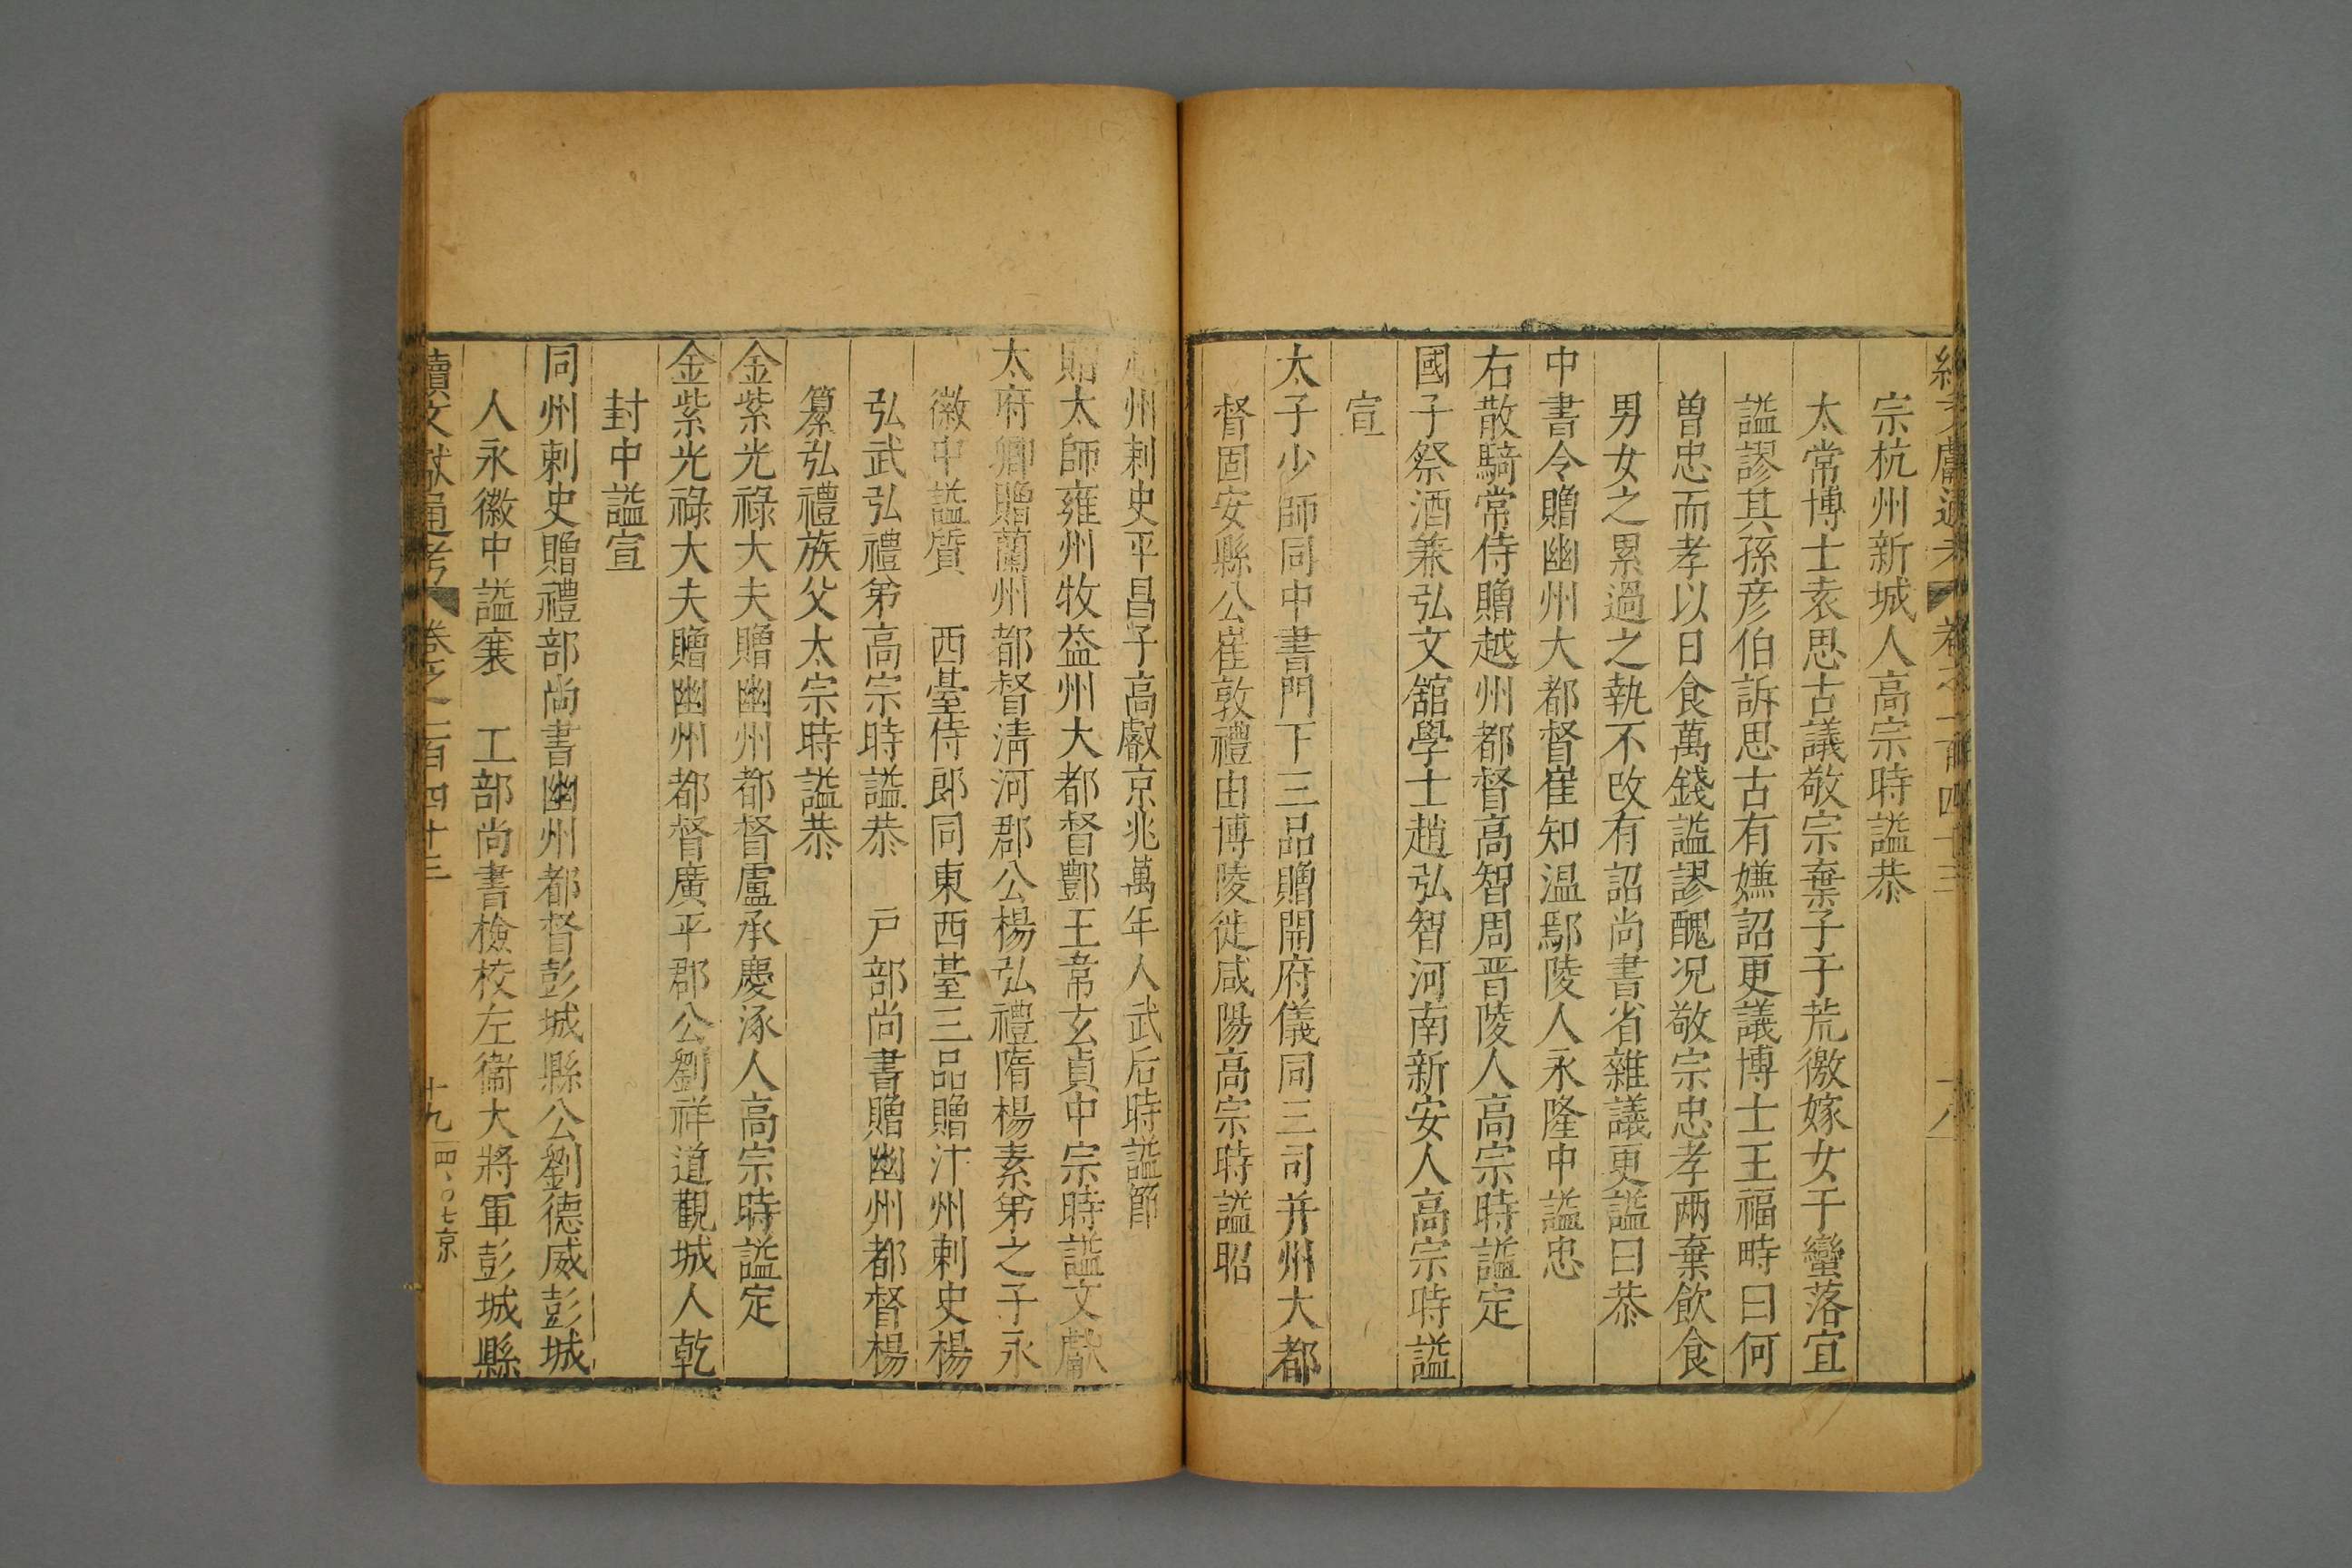 續文獻通考 卷之一百四十三 十八
宗杭州新城人高宗時謚恭
太常博士袁思古議敬宗棄子于荒徼嫁女于蠻落宜
謚謬其孫彥伯訴思古有嫌詔更議博士王福畤曰何
曽忠而孝以日食萬錢謚謬醜况敬宗忠孝兩棄飲食
男女之累過之執不改有詔尚書省雜議更謚曰恭
中書令贈幽州大都督崔知温鄢陵人永隆中謚忠
右散騎常侍贈越州都督高智周晋陵人高宗時謚定
國子祭酒兼弘文舘學士趙弘智河南新安人高宗時謚
宣
太子少師同中書門下三品贈開府儀同三司并州大都
督固安縣公崔敦禮由博陵徙咸陽高宗時謚昭
州刺史平昌子高叡京兆萬年人武后時謚節
贈太師雍州牧益州大都督酆王韋玄貞中宗時謚文獻
太府卿贈蘭州都督清河郡公楊弘禮隋楊素弟之子永
徽中謚質 西臺侍郎同東西基三品贈汴州刺史楊
弘武弘禮弟高宗時謚恭 戸部尚書贈幽州都督楊
纂弘禮族父太宗時謚恭
金紫光祿大夫贈幽州都督盧承慶涿人高宗時謚定
金紫光祿大夫贈幽州都督廣平郡公劉祥道觀城人乾
封中謚宣
同州刺史贈禮部尚書幽州都督彭城縣公劉德威彭城
人永徽中謚襄 工部尚書檢校左衞大將軍彭城縣
續文獻通考 卷之一百四十三 十九 四、〇七京